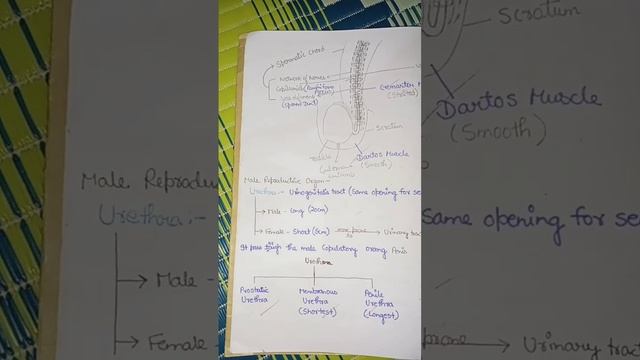 Spermatic Chord
Network of Nerves
Capillaries (Pampiform
Plexus)
Vas deferens
(Sperm Duct)
Cremaster M
(Striated)
Scrotum
Testis
Dartos Muscle
(Smooth)
Male Reproductive Organ-
Urethra:- Urinogenital tract (Same opening for se
Male - Long (20cm)
Female - Short (6cm) more prone to Urinary tract
It pass through the male Copulatory orang Penis
Urethra
Prostatic Urethra
Membranous Urethra (Shortest)
Penile Urethra (Longest)
Scratum
Dartos Muscle
(Smooth)
Male Reprodu
Urethra:-
same opening for se
Male -
Female
prone
Urinary tract